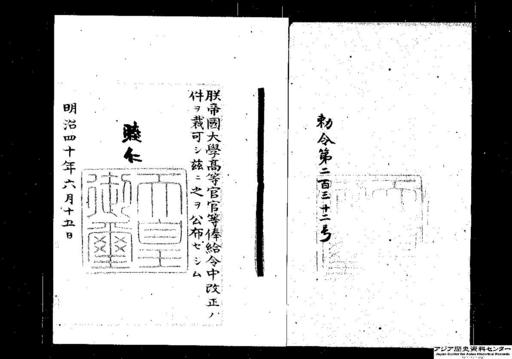 勅令第二百三十二号
朕帝國大學高等官官等俸給令中改正ノ
件ヲ裁可シ茲ニ之ヲ公布セシム
睦仁
天皇
御璽
明治四十年六月十五日
アジア歴史資料センター
Japan Center for Asian Historical Records